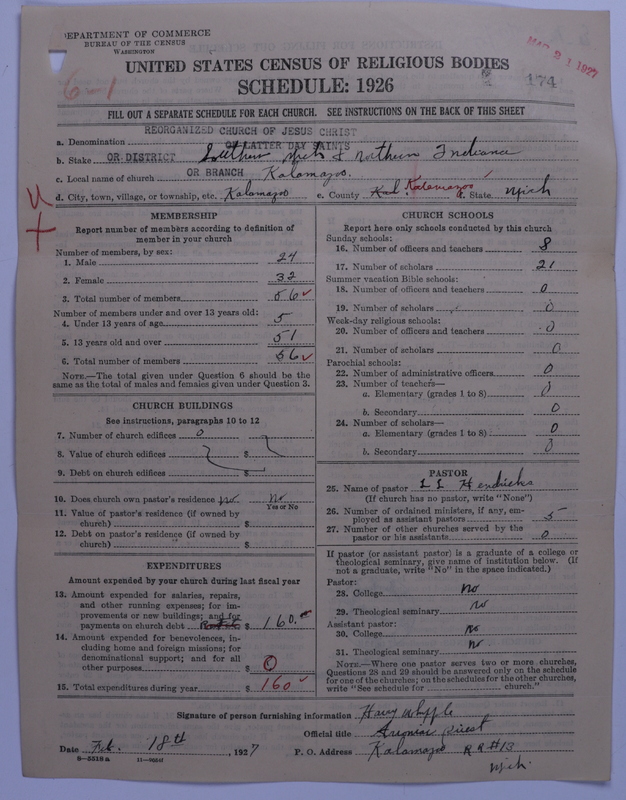 DEPARTMENT OF COMMERCE
BUREAU OF THE CENSUS
WASHINGTON
MAR 21 1927
6-1
174
UNITED STATES CENSUS OF RELIGIOUS BODIES
SCHEDULE: 1926
FILL OUT A SEPARATE SCHEDULE FOR EACH CHURCH. SEE INSTRUCTIONS ON THE BACK OF THIS SHEET
REORGANIZED CHURCH OF JESUS CHRIST
a. Denomination OF LATTER DAY SAINTS
b. Stake OR DISTRICT Southern Mich & Northern Indiana
c. Local name of church OR BRANCH Kalamazoo.
d. City, town, village, or township, etc. Kalamazoo e. County Kal Kalamazoo d. State Mich
MEMBERSHIP
Report number of members according to definition of
member in your church
Number of members, by sex:
1. Male 24
2. Female 32
3. Total number of members 56
Number of members under and over 13 years old:
4. Under 13 years of age 5
5. 13 years old and over 51
6. Total number of members 56
NOTE.—The total given under Question 6 should be the
same as the total of males and females given under Question 3.
CHURCH BUILDINGS
See instructions, paragraphs 10 to 12
7. Number of church edifices 0
8. Value of church edifices $
9. Debt on church edifices $
10. Does church own pastor's residence No. No
Yes or No
11. Value of pastor's residence (if owned by
church) $
12. Debt on pastor's residence (if owned by
church) $
EXPENDITURES
Amount expended by your church during last fiscal year
13. Amount expended for salaries, repairs,
and other running expenses; for im-
provements or new buildings; and for
payments on church debt $ 160.
14. Amount expended for benevolences, in-
cluding home and foreign missions; for
denominational support; and for all
other purposes $ 0
15. Total expenditures during year $ 160
CHURCH SCHOOLS
Report here only schools conducted by this church
Sunday schools:
16. Number of officers and teachers 8
17. Number of scholars 21
Summer vacation Bible schools:
18. Number of officers and teachers 0
19. Number of scholars 0
Week-day religious schools:
20. Number of officers and teachers 0
21. Number of scholars 0
Parochial schools:
22. Number of administrative officers 0
23. Number of teachers—
a. Elementary (grades 1 to 8) 0
b. Secondary 0
24. Number of scholars—
a. Elementary (grades 1 to 8) 0
b. Secondary 0
PASTOR
25. Name of pastor Hendricks
(If church has no pastor, write "None")
26. Number of ordained ministers, if any, em-
ployed as assistant pastors 5
27. Number of other churches served by the
pastor or his assistants 0
If pastor (or assistant pastor) is a graduate of a college or
theological seminary, give name of institution below. (If
not a graduate, write "No" in the space indicated.)
Pastor:
28. College No
29. Theological seminary No
Assistant pastor:
30. College No
31. Theological seminary No
NOTE.—Where one pastor serves two or more churches,
Questions 28 and 29 should be answered only on the schedule
for one of the churches; on the schedules for the other churches,
write "See schedule for church."
Signature of person furnishing information Harry Whipple
Official title Priest
Date Feb. 18th, 1927 P. O. Address Kalamazoo R R #13
Mich.
8—5318a